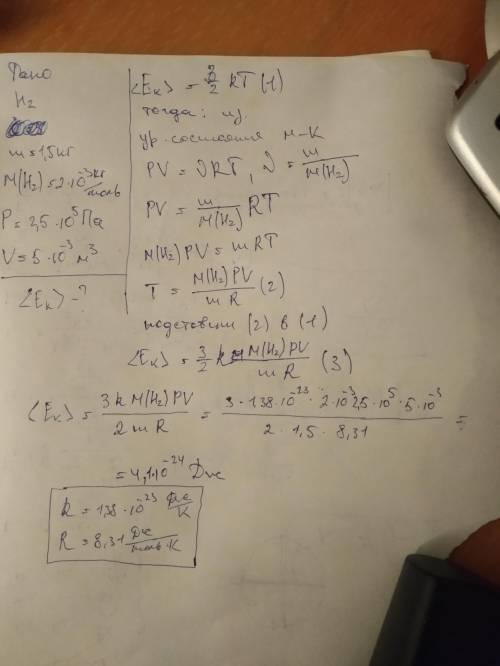 Дано
H₂
m = 1,5 кг
M(H₂) = 2·10⁻³ кг/моль
P = 2,5·10⁵ Па
V = 5·10⁻³ м³
⟨Eк⟩ - ?
⟨Eк⟩ = 3/2 kT (1)
тогда: из
ур. состояния М-К
PV = νRT, ν = m/M(H₂)
PV = m/M(H₂) RT
M(H₂)PV = mRT
T = M(H₂)PV/mR (2)
подставим (2) в (1)
⟨Eк⟩ = 3/2 k M(H₂)PV/mR (3)
⟨Eк⟩ = 3kM(H₂)PV/2mR = 3·1,38·10⁻²³·2·10⁻³·2,5·10⁵·5·10⁻³/2·1,5·8,31 =
= 4,1·10⁻²⁴ Дж
k = 1,38·10⁻²³ Дж/К
R = 8,31 Дж/моль·К